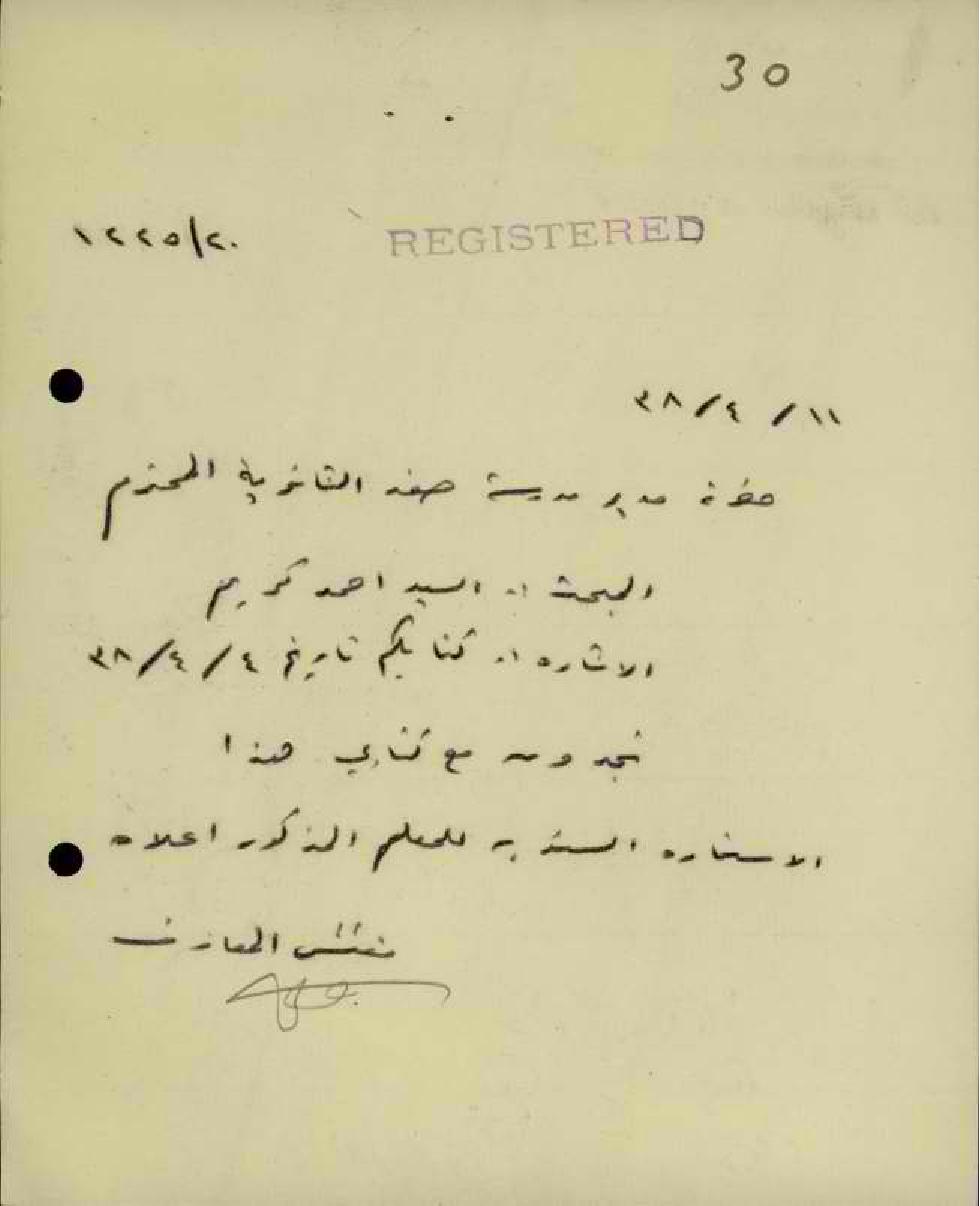 30
١٢٢٥/٢٠
REGISTERED
١١/ ٤ /٣٨
حضرة مدير مدرسة صفد الثانوية المحترم
المبحث :. السيد احمد كريم
الاشاره :. كتابكم تاريخ ٤ / ٤ /٣٨
تجدون مع كتابي هذا
الاستماره السنويه للمعلم المذكور اعلاه
مفتش المعارف